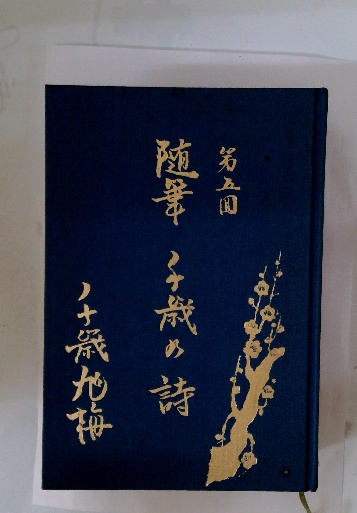 第五回
随筆 八十歳の詩
八十歳 旭梅